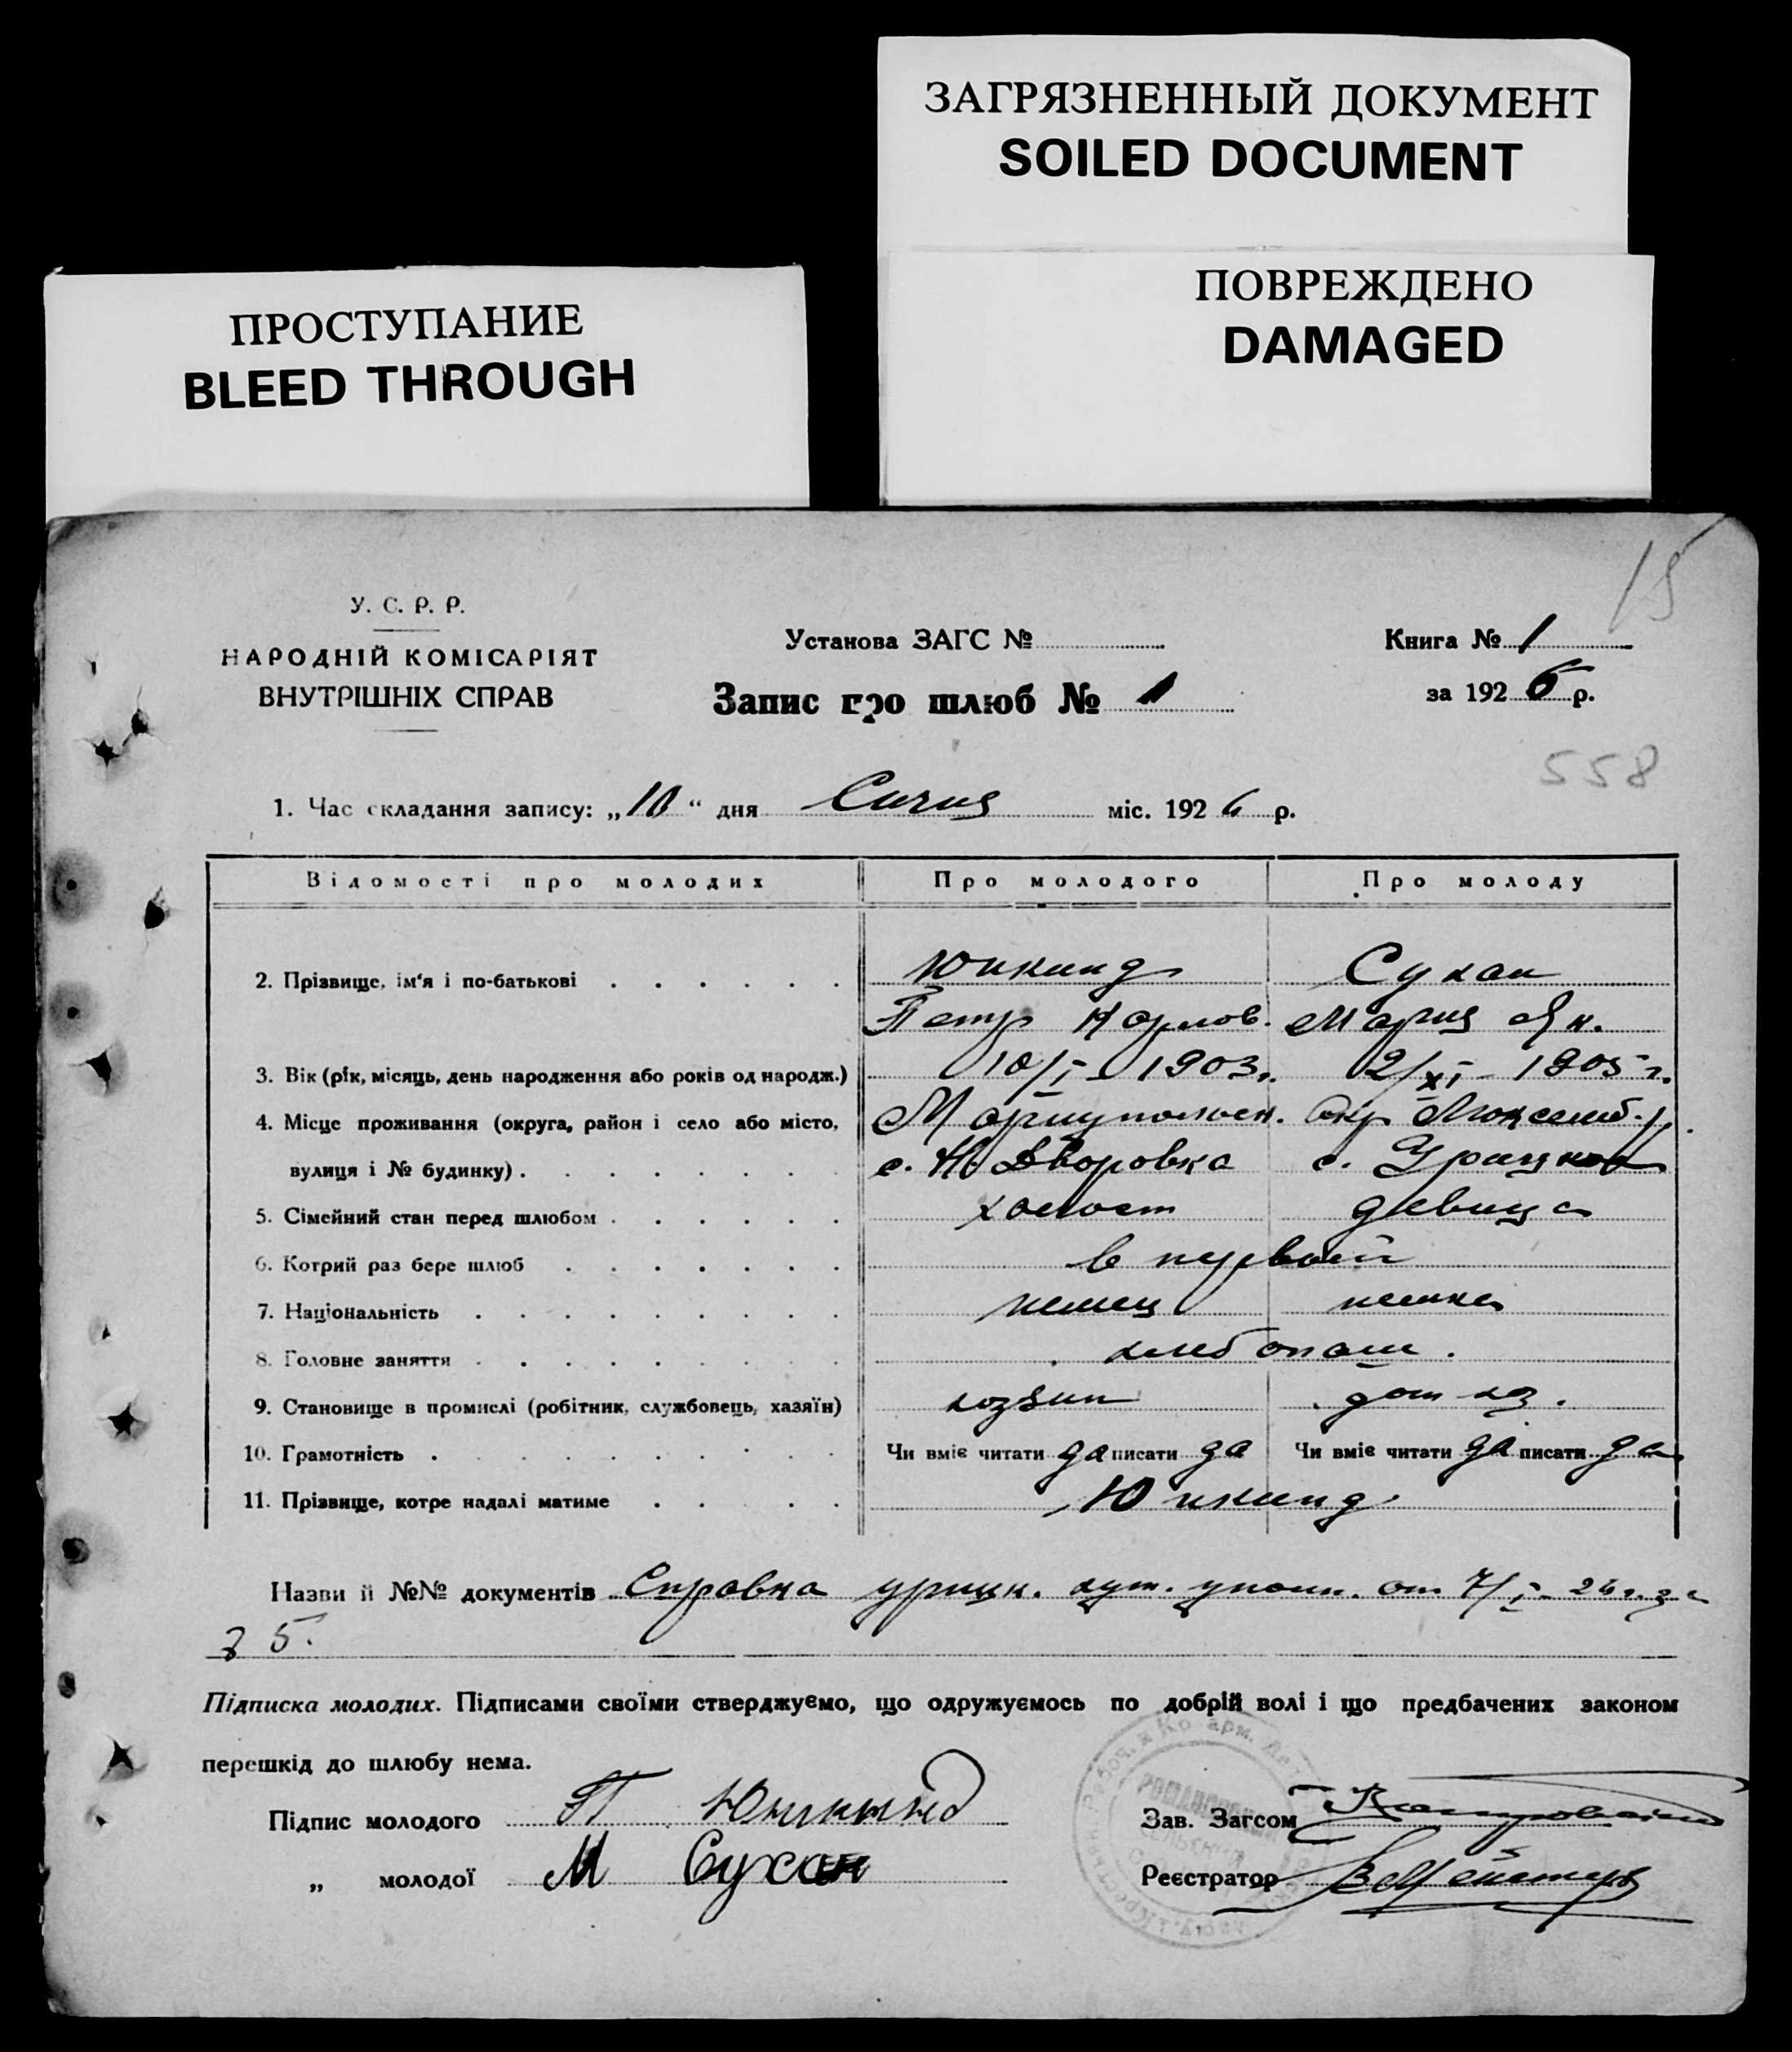 ЗАГРЯЗНЕННЫЙ ДОКУМЕНТ
SOILED DOCUMENT
ПОВРЕЖДЕНО
DAMAGED
ПРОСТУПАНИЕ
BLEED THROUGH
15
У. С. Р. Р.
НАРОДНІЙ КОМІСАРІЯТ
ВНУТРІШНІХ СПРАВ
Установа ЗАГС №
Запис про шлюб № 1
Книга № 1
за 1926 р.
558
1. Час складання запису: „10" дня Січня міс. 1926 р.
Відомості про молодих Про молодого Про молоду
2. Прізвище, ім'я і по-батькові Юнкинд Сухан
Петр Карлов. Мария Як.
3. Вік (рік, місяць, день народження або років од народж.) 10/I - 1903г. 2/XI - 1905 г.
4. Місце проживання (округа, район і село або місто, Мариупольск. Окр. Люксемб. р.
вулиця і № будинку) с. Н. Дворовка с. Урицкое
5. Сімейний стан перед шлюбом холост девица
6. Котрий раз бере шлюб в первый
7. Національність немец немка
8. Головне заняття хлебопаш.
9. Становище в промислі (робітник, службовець, хазяїн) хозяин дом хоз.
10. Грамотність Чи вміє читати да писати да Чи вміє читати да писати да
11. Прізвище, котре надалі матиме Юнкинд
Назви й №№ документів Справка урицк. сут. уполн. от 7/I - 26 г. за
35.
Підписка молодих. Підписами своїми стверджуємо, що одружуємось по добрій волі і що предбачених законом
перешкід до шлюбу нема.
Підпис молодого П Юнкинд
„ молодої М Сухан
Зав. Загсом
Реєстратор